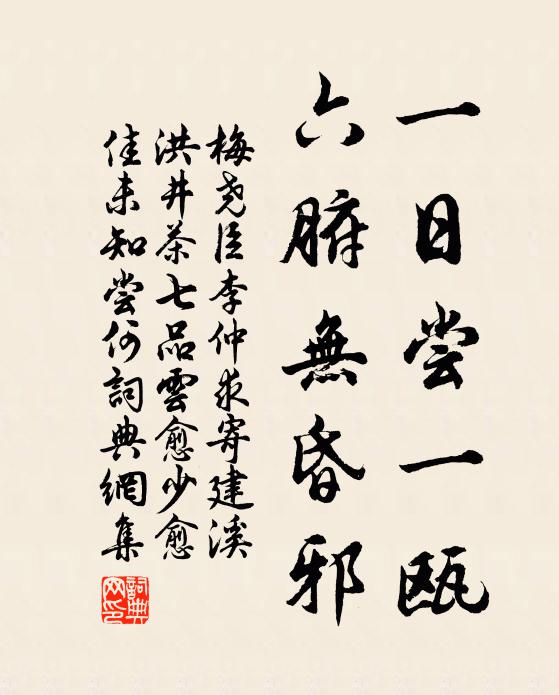 一日尝一瓯
六腑無昏邪
梅尧臣李仲求寄建溪
洪井茶七品雲愈少愈
佳未知尝何詞典網集
詞典网印